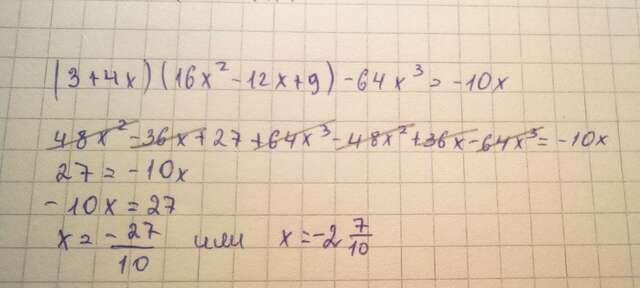 (3+4x)(16x²-12x+9)-64x³=-10x
48x²-36x+27+64x³-48x²+36x-64x³=-10x
27=-10x
-10x=27
x=-27/10 или x=-2 7/10